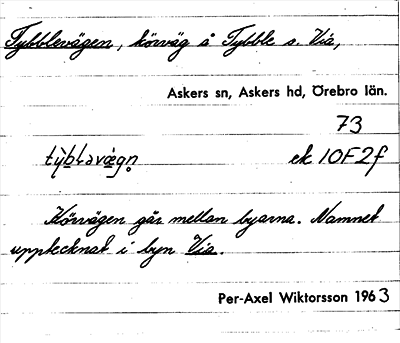 Tybblevägen, körväg å Tybble s. Via,
Askers sn, Askers hd, Örebro län.
73
ek 10F2f
Körvägen går mellan byarna. Namnet
upptecknat i byn Via.
Per-Axel Wiktorsson 1963